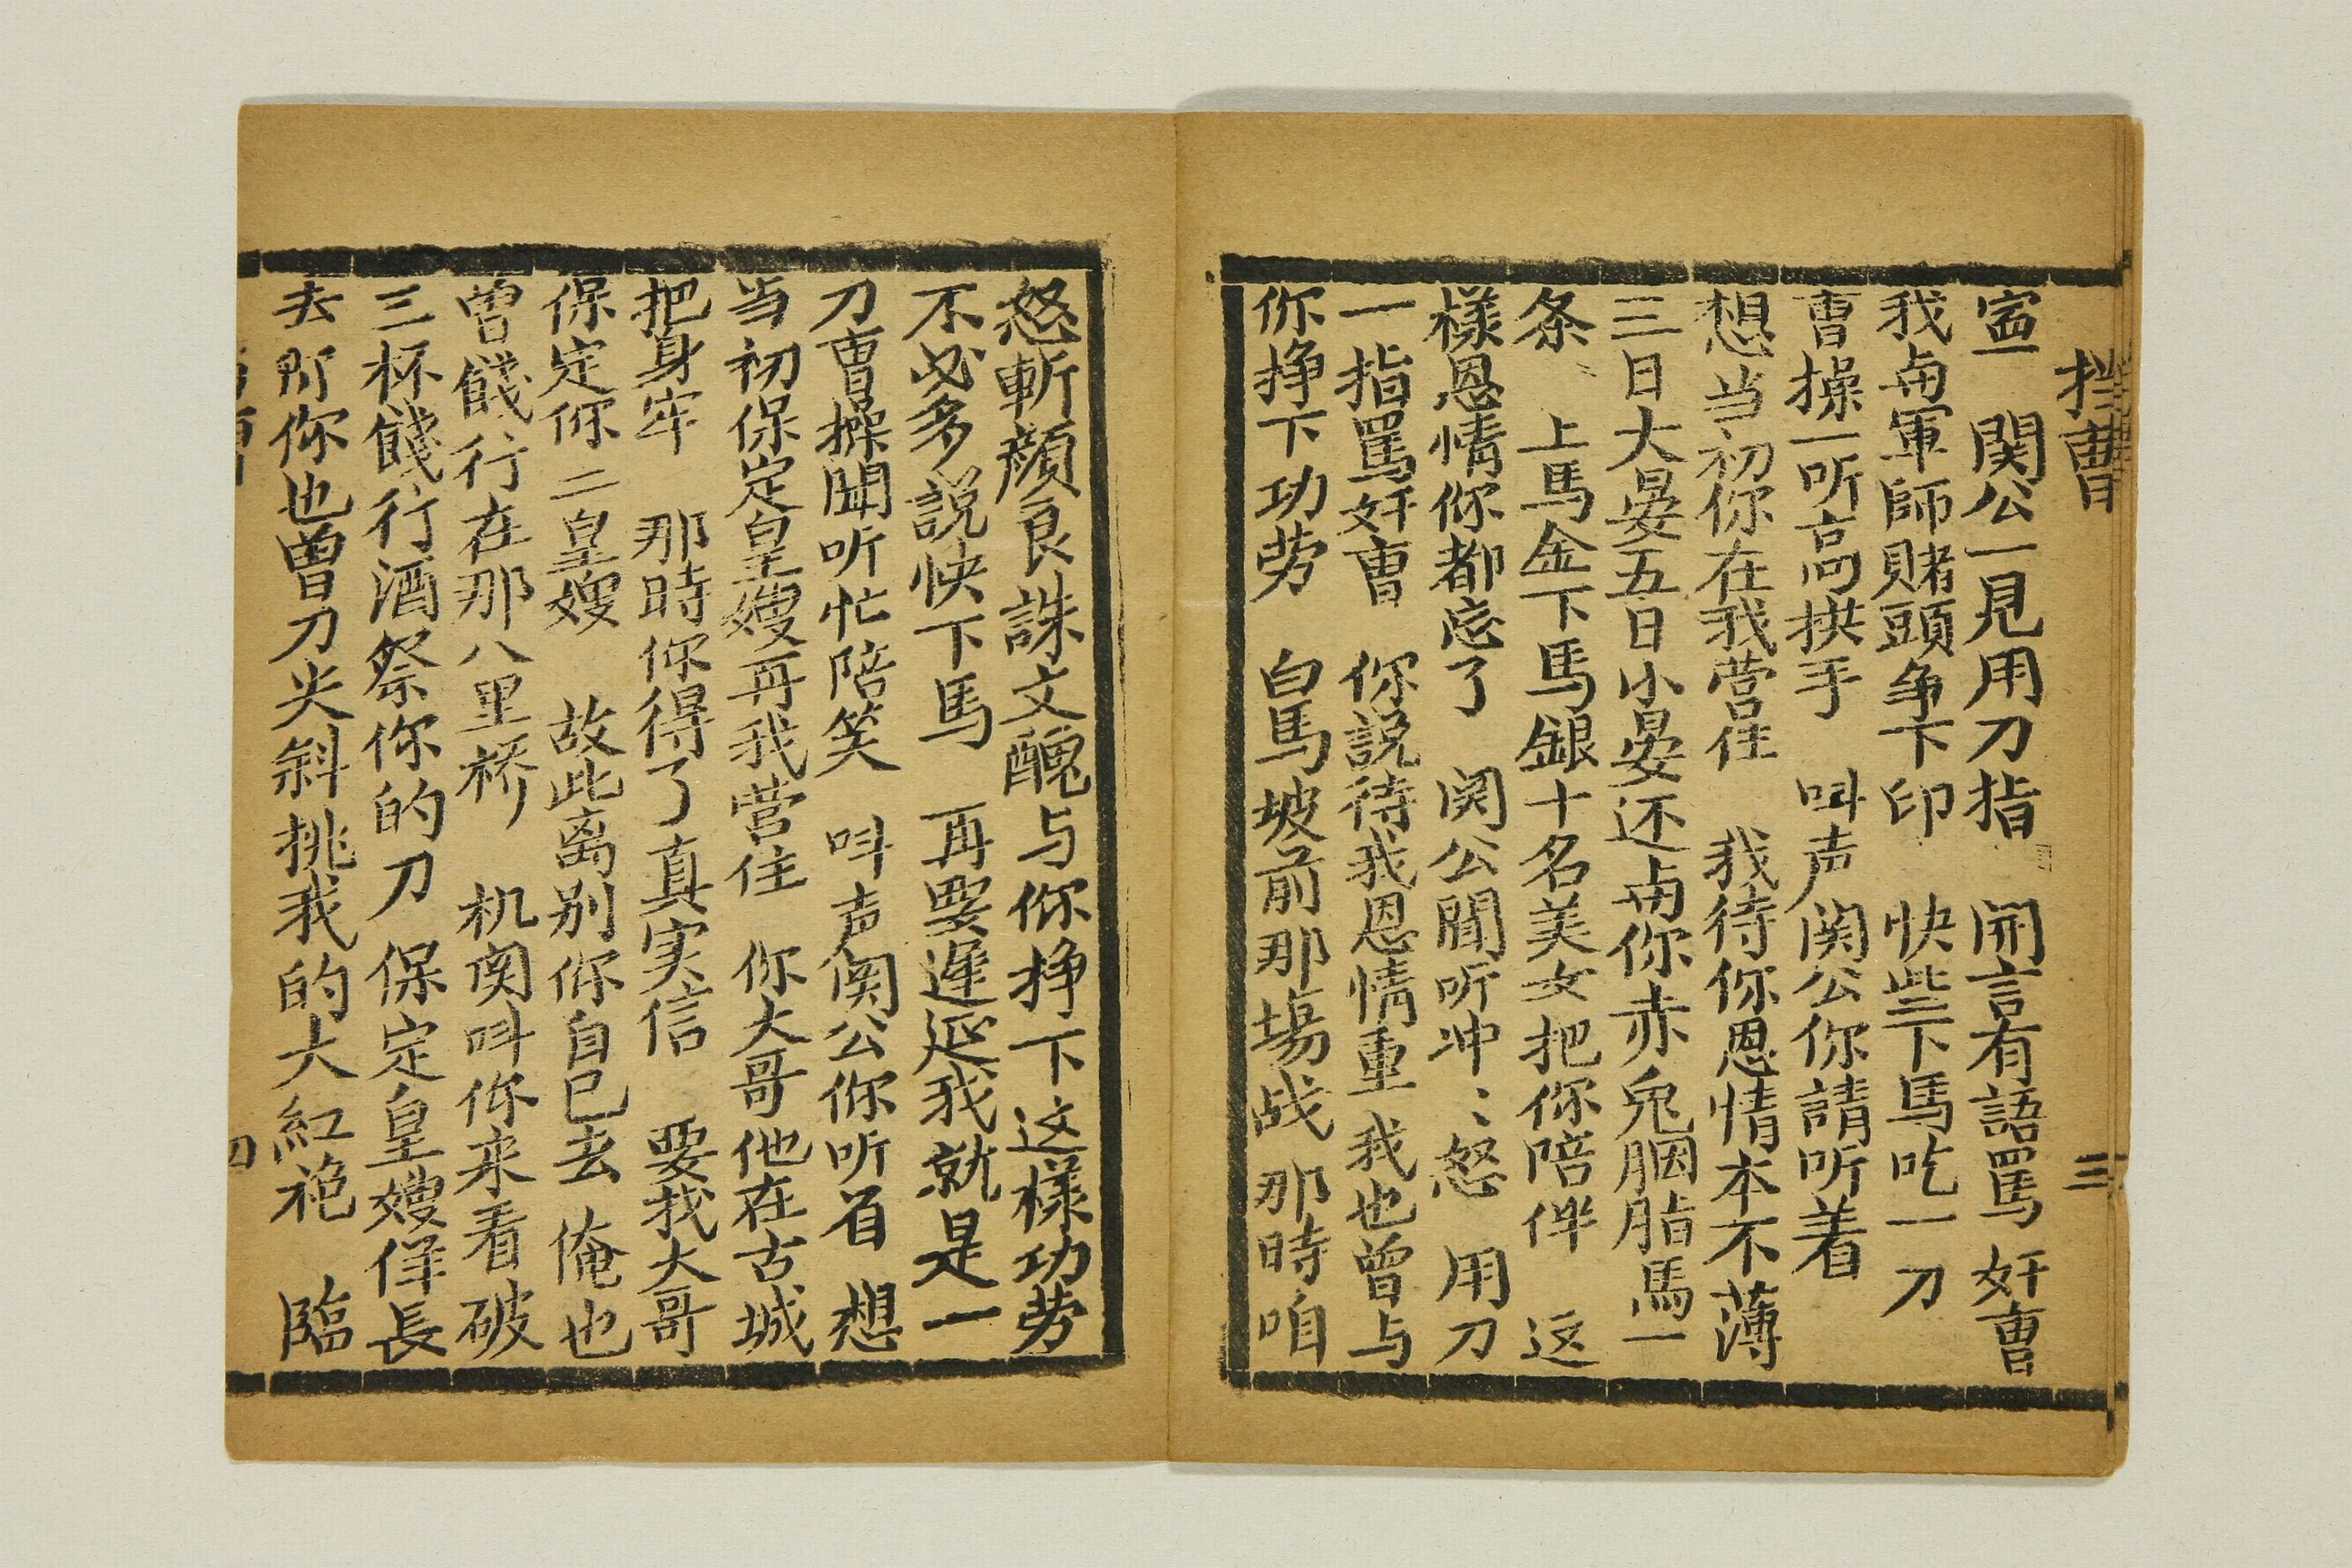 挡曹 三
關公一見用刀指 開言有語罵奸曹
我与軍師賭頭争下印 快些下馬吃一刀
曹操一听高拱手 呌声関公你請听着
想当初你在我营住 我待你恩情本不薄
三日大晏五日小晏还与你赤兎胭脂馬一
条 上馬金下馬銀十名美女把你陪伴 这
樣恩情你都忘了 関公聞听冲〻怒 用刀
一指罵奸曹 你説待我恩情重我也曾与
你挣下功劳 白馬坡前那場战那時咱
怒斬顔良誅文醜与你挣下这樣功劳
不必多説快下馬 再要遲延我就是一
刀曹操聞听忙陪笑 呌声関公你听着 想
当初保定皇嫂再我营住 你大哥他在古城
把身牢 那時你得了真実信 要找大哥
保定你二皇嫂 故此离别你自己去 俺也
曾餞行在那八里桥 机関呌你来看破
三杯餞行酒祭你的刀 保定皇嫂徉長
去 那你也曽刀尖斜挑我的大紅袍 臨
四